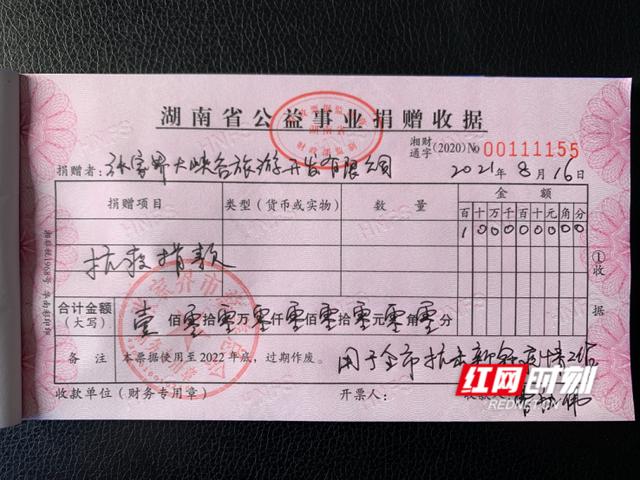 湖南省公益事业捐赠收据
湘财通字(2020)No 00111155
捐赠者:张家界大峡谷旅游开发有限公司 2021年8月16日
捐赠项目 类型(货币或实物) 数量 金额
百十万千百十元角分
100000000
抗疫捐款
合计金额(大写) 壹佰零拾零万零仟零佰零拾零元零角零分
备注 本票据使用至2022年底,过期作废。 用于全市抗击新冠疫情工作
收款单位(财务专用章) 开票人:
①收据
红网时刻
REDNET.CN